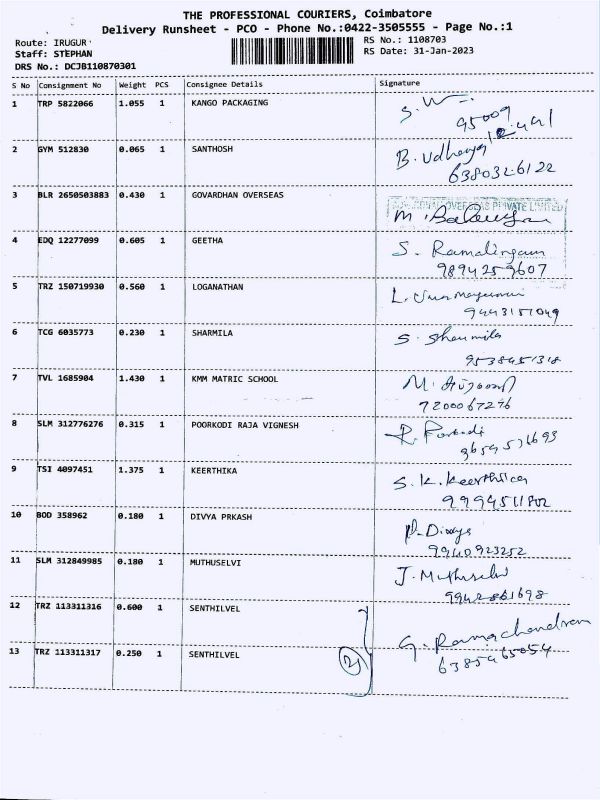 THE PROFESSIONAL COURIERS, Coimbatore
Delivery Runsheet - PCO - Phone No.:0422-3505555 - Page No.:1
Route: IRUGUR
Staff: STEPHAN
DRS No.: DCJB110870301
RS No.: 1108703
RS Date: 31-Jan-2023
S No Consignment No Weight PCS Consignee Details Signature
1 TRP 5822066 1.055 1 KANGO PACKAGING
95009
2 GYM 512830 0.065 1 SANTHOSH B. Udhaya
6380326122
3 BLR 2650503883 0.430 1 GOVARDHAN OVERSEAS
OVERSEAS PRIVATE LIMITED
4 EDQ 12277099 0.605 1 GEETHA S. Ramalingam
9894259607
5 TRZ 150719930 0.560 1 LOGANATHAN L.
9443151049
6 TCG 6035773 0.230 1 SHARMILA S. Sharmila
9538451318
7 TVL 1685904 1.430 1 KMM MATRIC SCHOOL M.
7200067276
8 SLM 312776276 0.315 1 POORKODI RAJA VIGNESH R. Porkodi
9659576693
9 TSI 4097451 1.375 1 KEERTHIKA S.K.Keerthica
9994511802
10 BOD 358962 0.180 1 DIVYA PRKASH P. Divya
9940923252
11 SLM 312849985 0.180 1 MUTHUSELVI J. Muthuselvi
9942861698
12 TRZ 113311316 0.600 1 SENTHILVEL
G. Ramachandran
13 TRZ 113311317 0.250 1 SENTHILVEL 2
6385465054